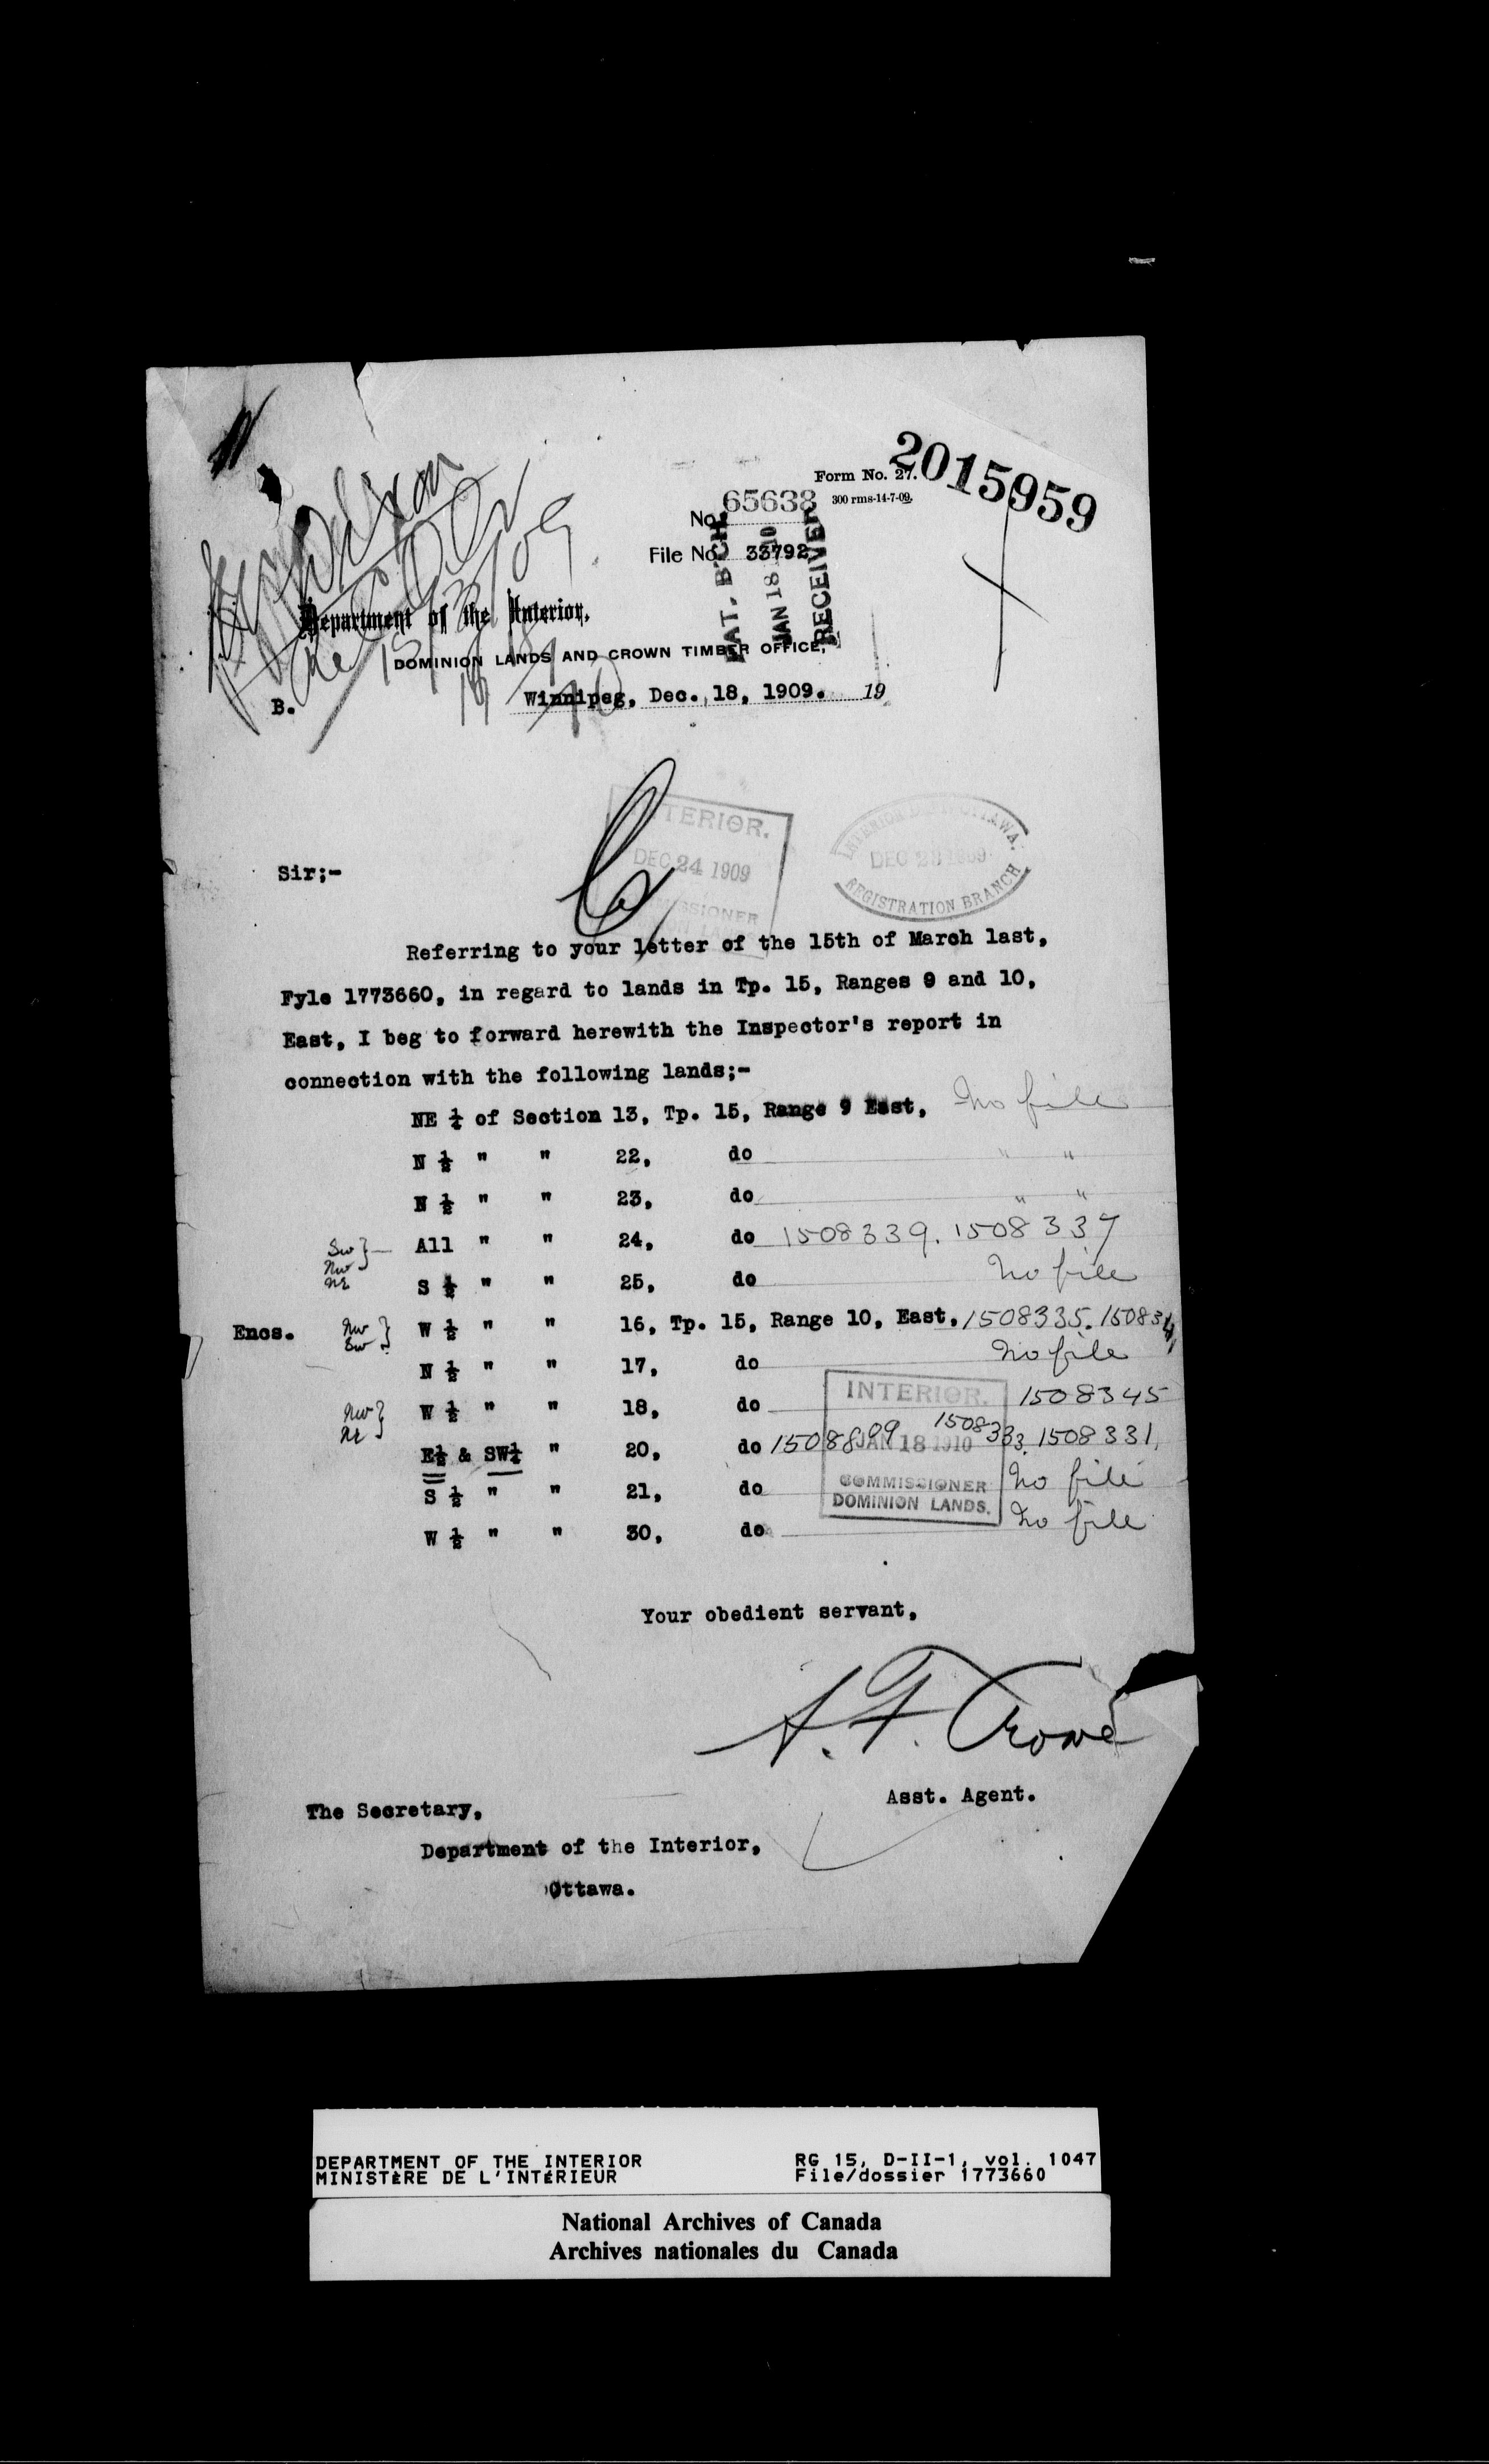 2015959
Form No. 27.
300 rms-14-7-09.
No. 65638
File No. 33792
PAT. B'CH
JAN 18 1910
RECEIVED
Department of the Interior,
DOMINION LANDS AND CROWN TIMBER OFFICE,
B.
Winnipeg, Dec. 18, 1909. 19
INTERIOR.
DEC 24 1909
COMMISSIONER
INTERIOR DEPT OTTAWA.
DEC 1909
REGISTRATION BRANCH
Sir;-
Referring to your letter of the 15th of March last,
Fyle 1773660, in regard to lands in Tp. 15, Ranges 9 and 10,
East, I beg to forward herewith the Inspector's report in
connection with the following lands;-
NE ¼ of Section 13, Tp. 15, Range 9 East, No file
N ½ " " 22, do " "
N ½ " " 23, do " "
Sw } All " " 24, do 1508339. 1508337
Nw
Ne S ½ " " 25, do No file
Encs. Nw } W ½ " " 16, Tp. 15, Range 10, East, 1508335.
Sw
N ½ " " 17, do No file
Nw } W ½ " " 18, do 1508345
Ne
E½ & SW¼ " 20, do 1508333. 1508331,
S ½ " " 21, do No file
W ½ " " 30, do No file
INTERIOR.
JAN 18 1910
COMMISSIONER
DOMINION LANDS.
Your obedient servant,
A. F. Crowe
Asst. Agent.
The Secretary,
Department of the Interior,
Ottawa.
DEPARTMENT OF THE INTERIOR RG 15, D-II-1, vol. 1047
MINISTÈRE DE L'INTÉRIEUR File/dossier 1773660
National Archives of Canada
Archives nationales du Canada